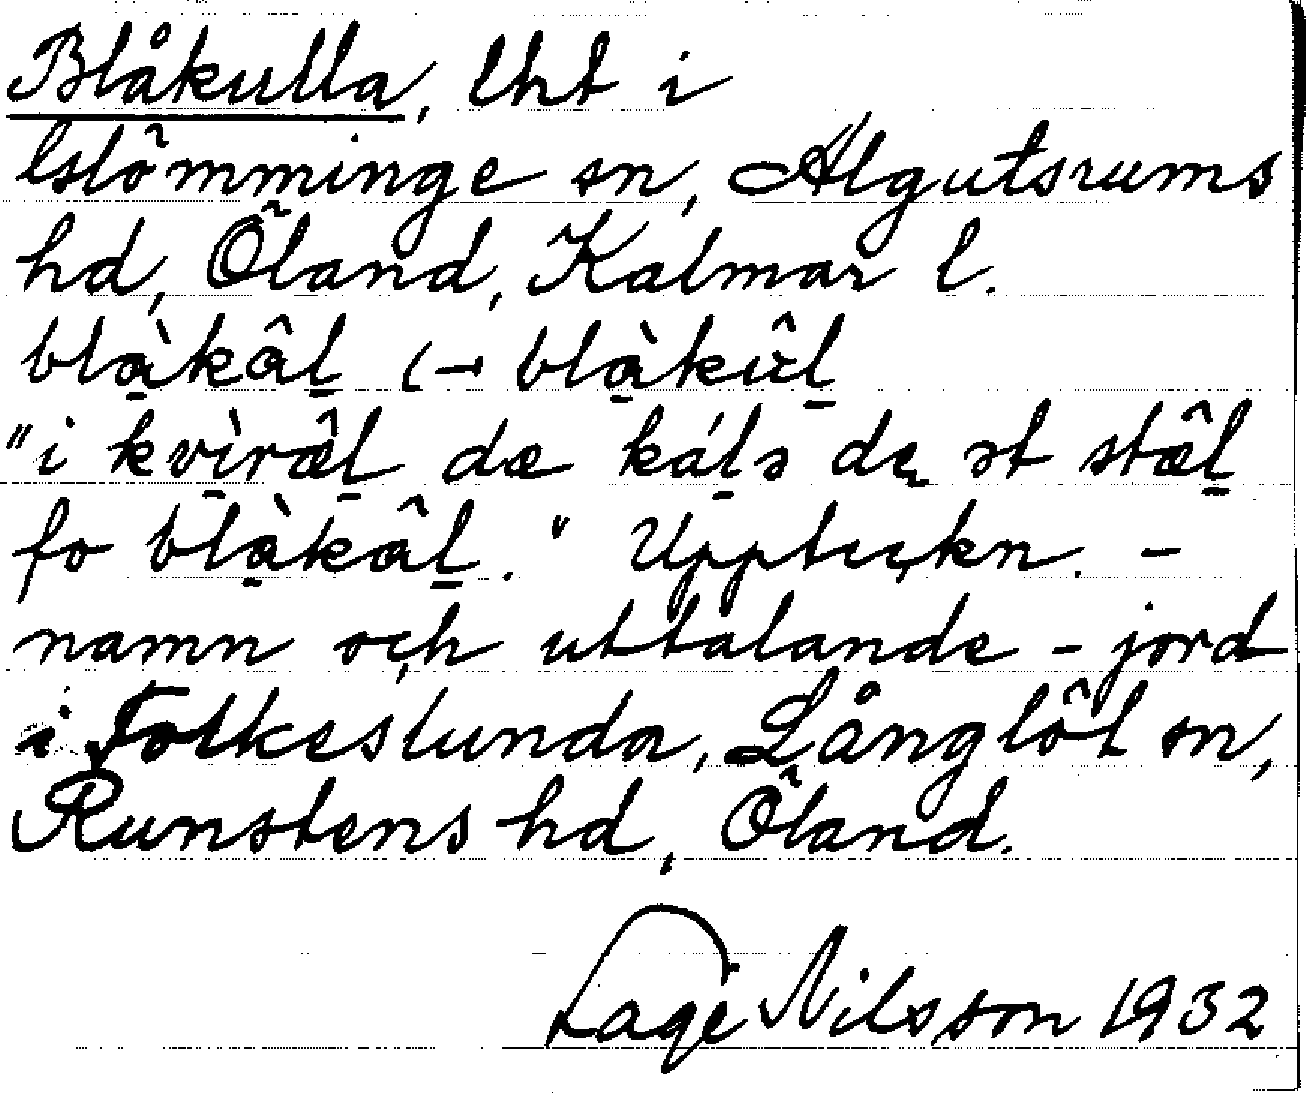 Blåkulla, lht i
Glömminge sn, Algutsrums
hd, Öland, Kalmar l.
blą̀kâḷ (→ blą̀kûḷ
"i kvìræ̂ḷ dæ káḷs dę ət stæ̂ḷ
fo blą̀kâḷ." Uppteckn. –
namn och uttalande – jord
i Folkeslunda, Långlöt sn,
Runstens hd, Öland.
Lage Nilsson 1932